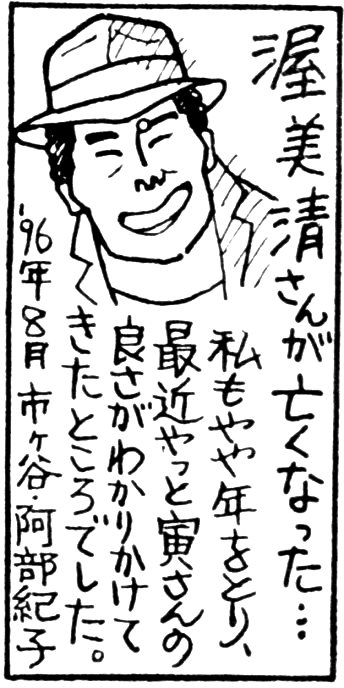 渥美清さんが亡くなった…
私もやや年をとり、
最近やっと寅さんの
良さがわかりかけて
きたところでした。
'96年8月 市ヶ谷・阿部紀子